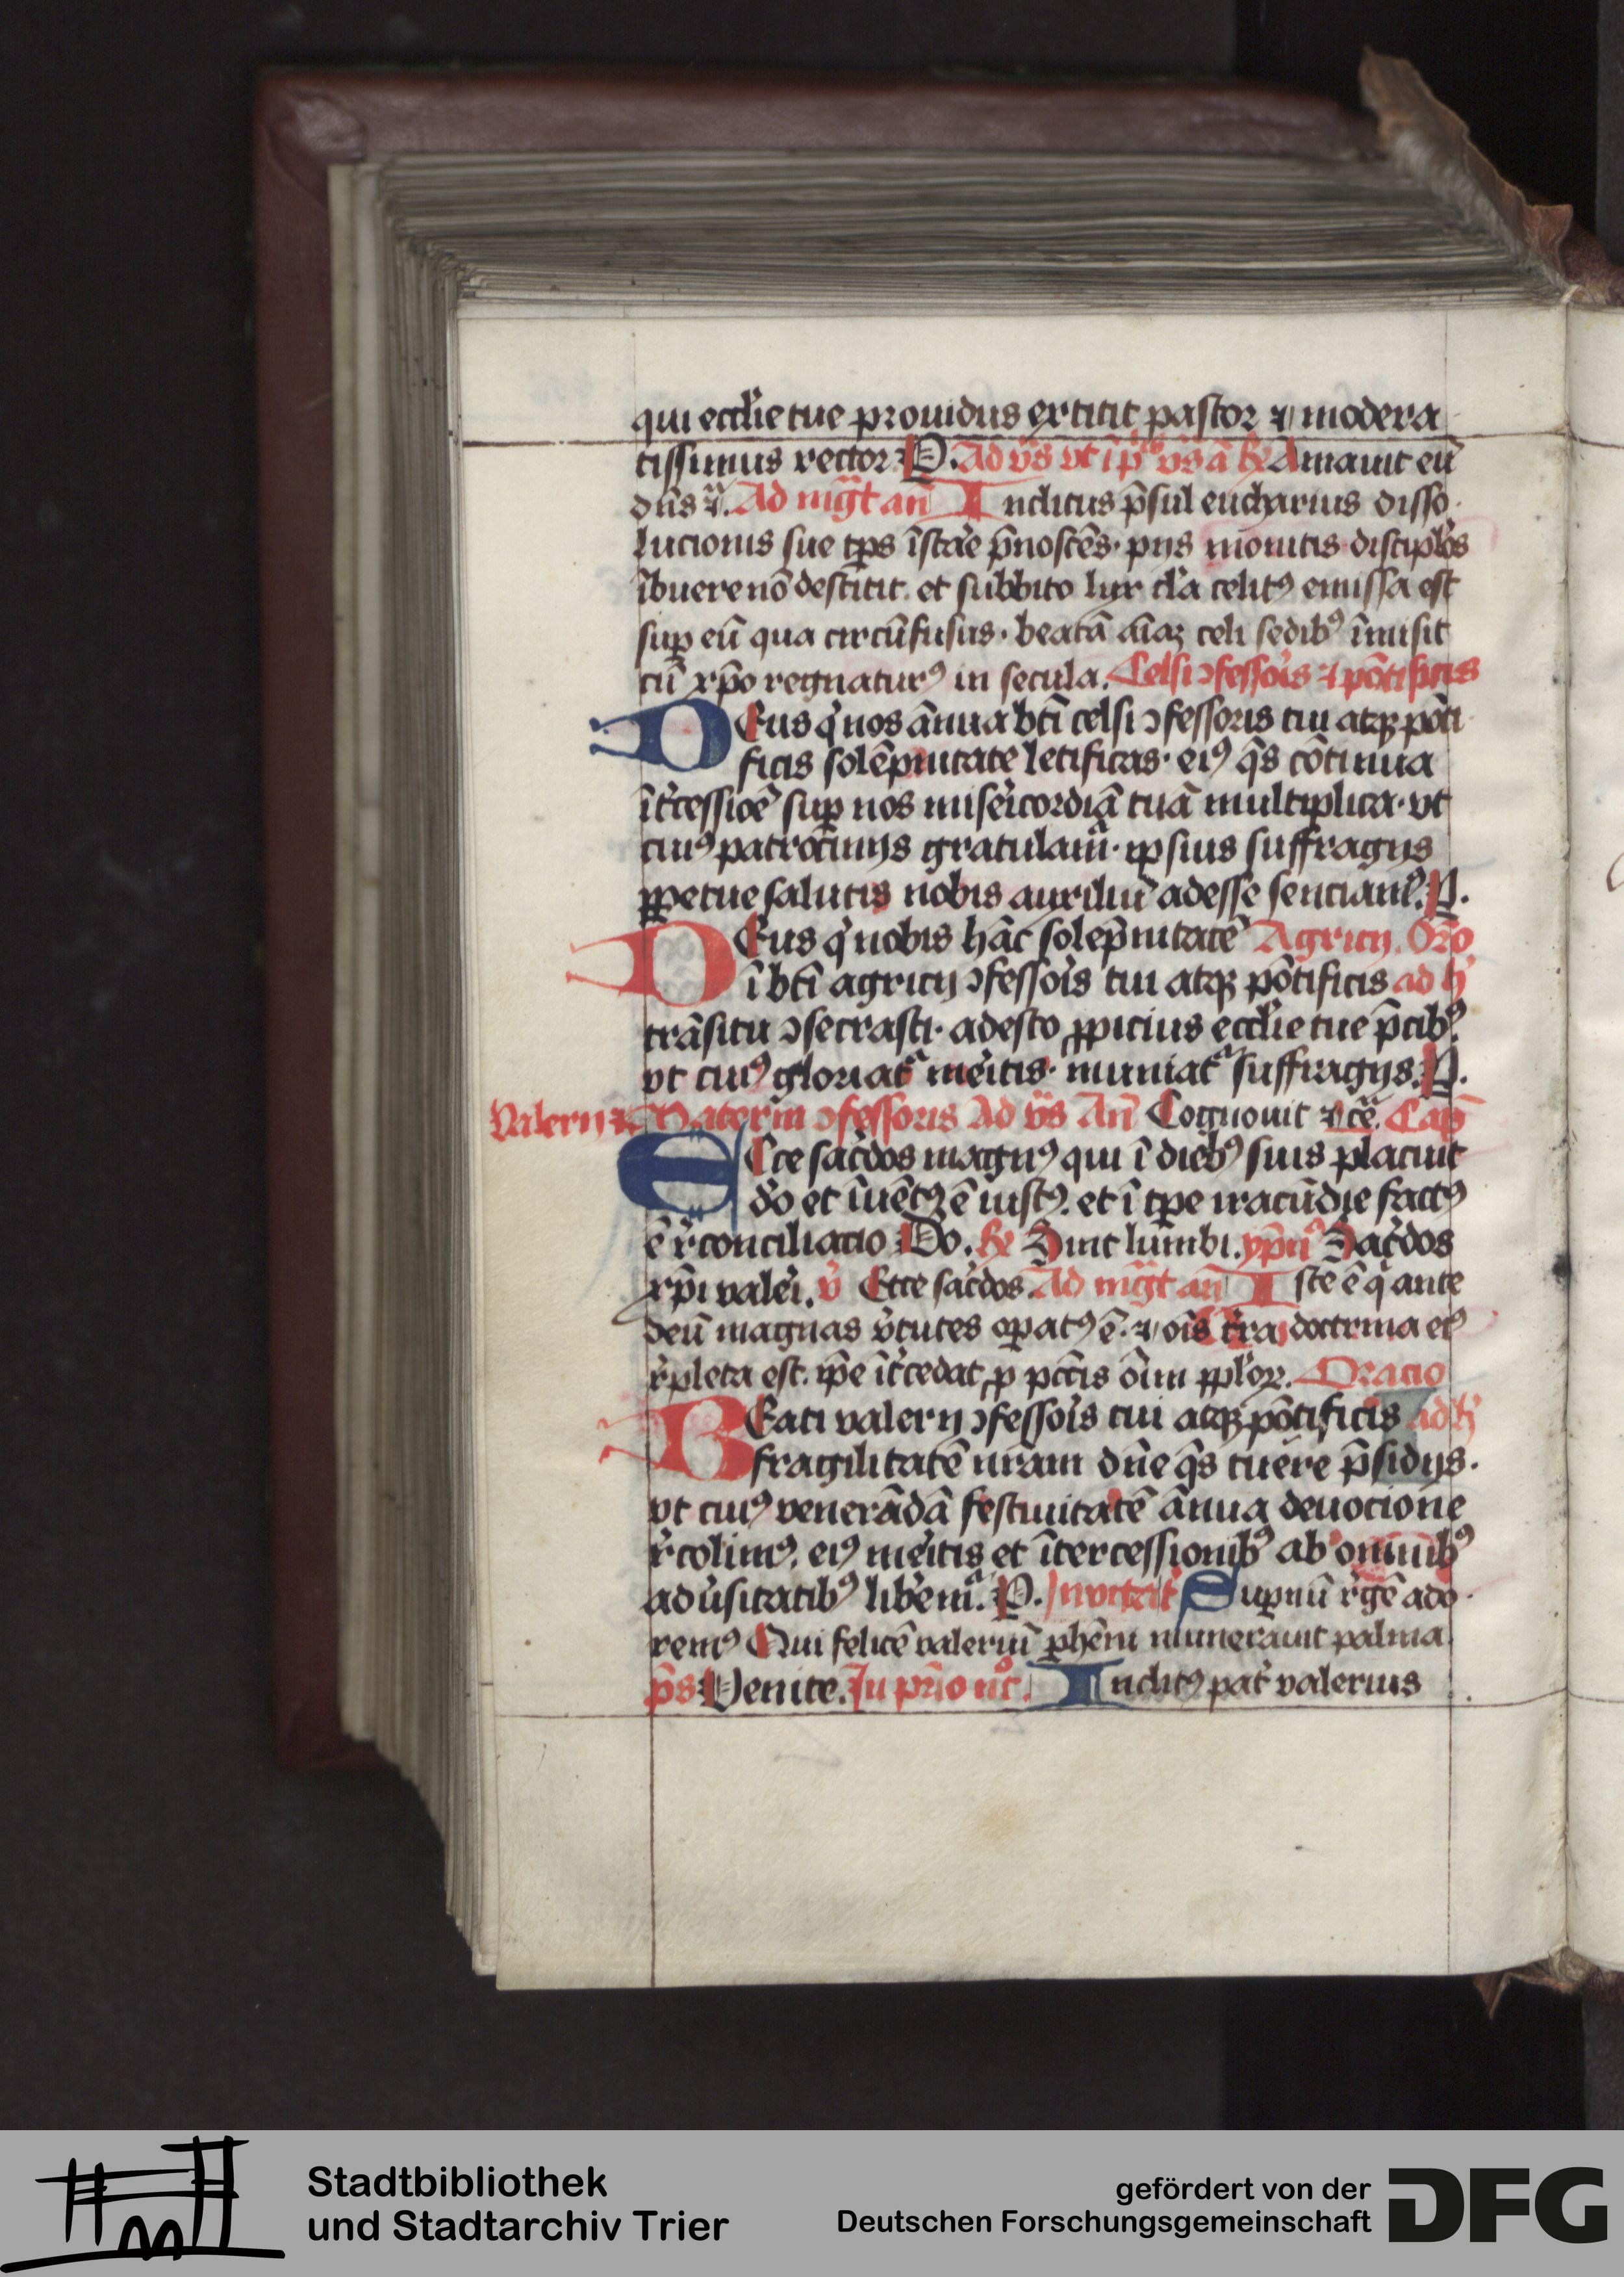 qui ecclīe tue prouidus extitit pastor ⁊ modera
tissimus rector P. Ad v̄s vt ī p̄ v̄s a ꝶ Amauit eū
dn̄s ⁊. Ad mḡt an̄ Inclitus p̄sul eucharius disso
lucionis sue tp̄s īstāe p̄noscēs. pijs monitis disciplōs
ībuere nō destitit. et subbito lux clāa celitꝰ emissa est
sup̱ eū qua circūfusus. beatā aīaꝫ celi sedibꝰ īmisit
cū xp̄o regnaturꝰ in secula. Celsi ↄfessoīs ⁊ pōtificis
DEus qͥ nos ānua btī celsi ↄfessoris tui atqꝫ pōti
ficis solēpnitate letificas. eiꝰ qs̄ cōtinua
īťcessiōe sup̱ nos miseīcordiā tuā multiplica. vt
cuiꝰ patrocīnijs gratulam̄. ipsius suffragijs
ꝑpetue salutis nobis auxiliū adesse senciamꝰ. P.
DEus qͥ nobis hāc solep̄nitatē Agricij. Oro
ī btī agricij ↄfessoīs tui atqꝫ pōtificis ad h̄
trāsitu ↄsecrasti. adesto ꝓpicius ecclīe tue p̄cibꝰ.
vt cuiꝰ gloriat̄ meītis. muniat̄ suffragijs. P.
Valerij ⁊ Materni ↄfessoris Ad v̄s An̄ Cognouit ⁊cē. Cap̄
ECce sac̄dos magnꝰ qui ī diebꝰ suis placuit
dō et īuētꝰ ē iustꝰ. et ī tp̱e iracūdie factꝰ
ē r̄conciliacio Do. ꝶ Sint lumbi. yp̄nꝰ Sac̄dos
xp̄i valeī. v̄ Ecce sac̄dos. Ad mḡt an̄ Iste ē qͥ ante
deū magnas v̄tutes op̱atꝰ ē. ⁊ oīs t̄ra doctrina eiꝰ
r̄pleta est. ip̄e īťcedat p̱ pctīs oīm pp̄lorꝝ. Oracio
BEati valerij ↄfessoīs tui atqꝫ pōtificis ad h̄
fragilitatē nr̄am dn̄e qs̄ tuere p̄sidijs.
vt cuiꝰ venerādā festiuitatē ānua deuocione
r̄colimꝰ. eiꝰ meītis et ītercessionibꝰ ab omnibꝰ
adūsitatibꝰ libem̄. P. Inuitat̄ Sup̱nū r̄gē ado
remꝰ Qui felicē valeriū p̱hēni munerauit palma
p̄s Venite. In pr̄io nc̄. Inclitꝰ pat̄ valerius
Stadtbibliothek
und Stadtarchiv Trier
gefördert von der
Deutschen Forschungsgemeinschaft
DFG